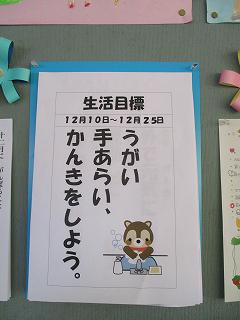 生活目標
12月10日～12月25日
うがい
手あらい、
かんきをしよう。